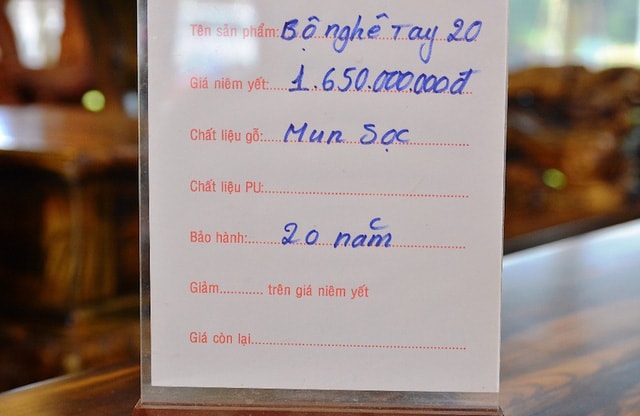 Tên sản phẩm: Bộ nghê Tay 20
Giá niêm yết: 1.650.000.000đ
Chất liệu gỗ: Mun Sọc
Chất liệu PU:
Bảo hành: 20 năm
Giảm............ trên giá niêm yết
Giá còn lại